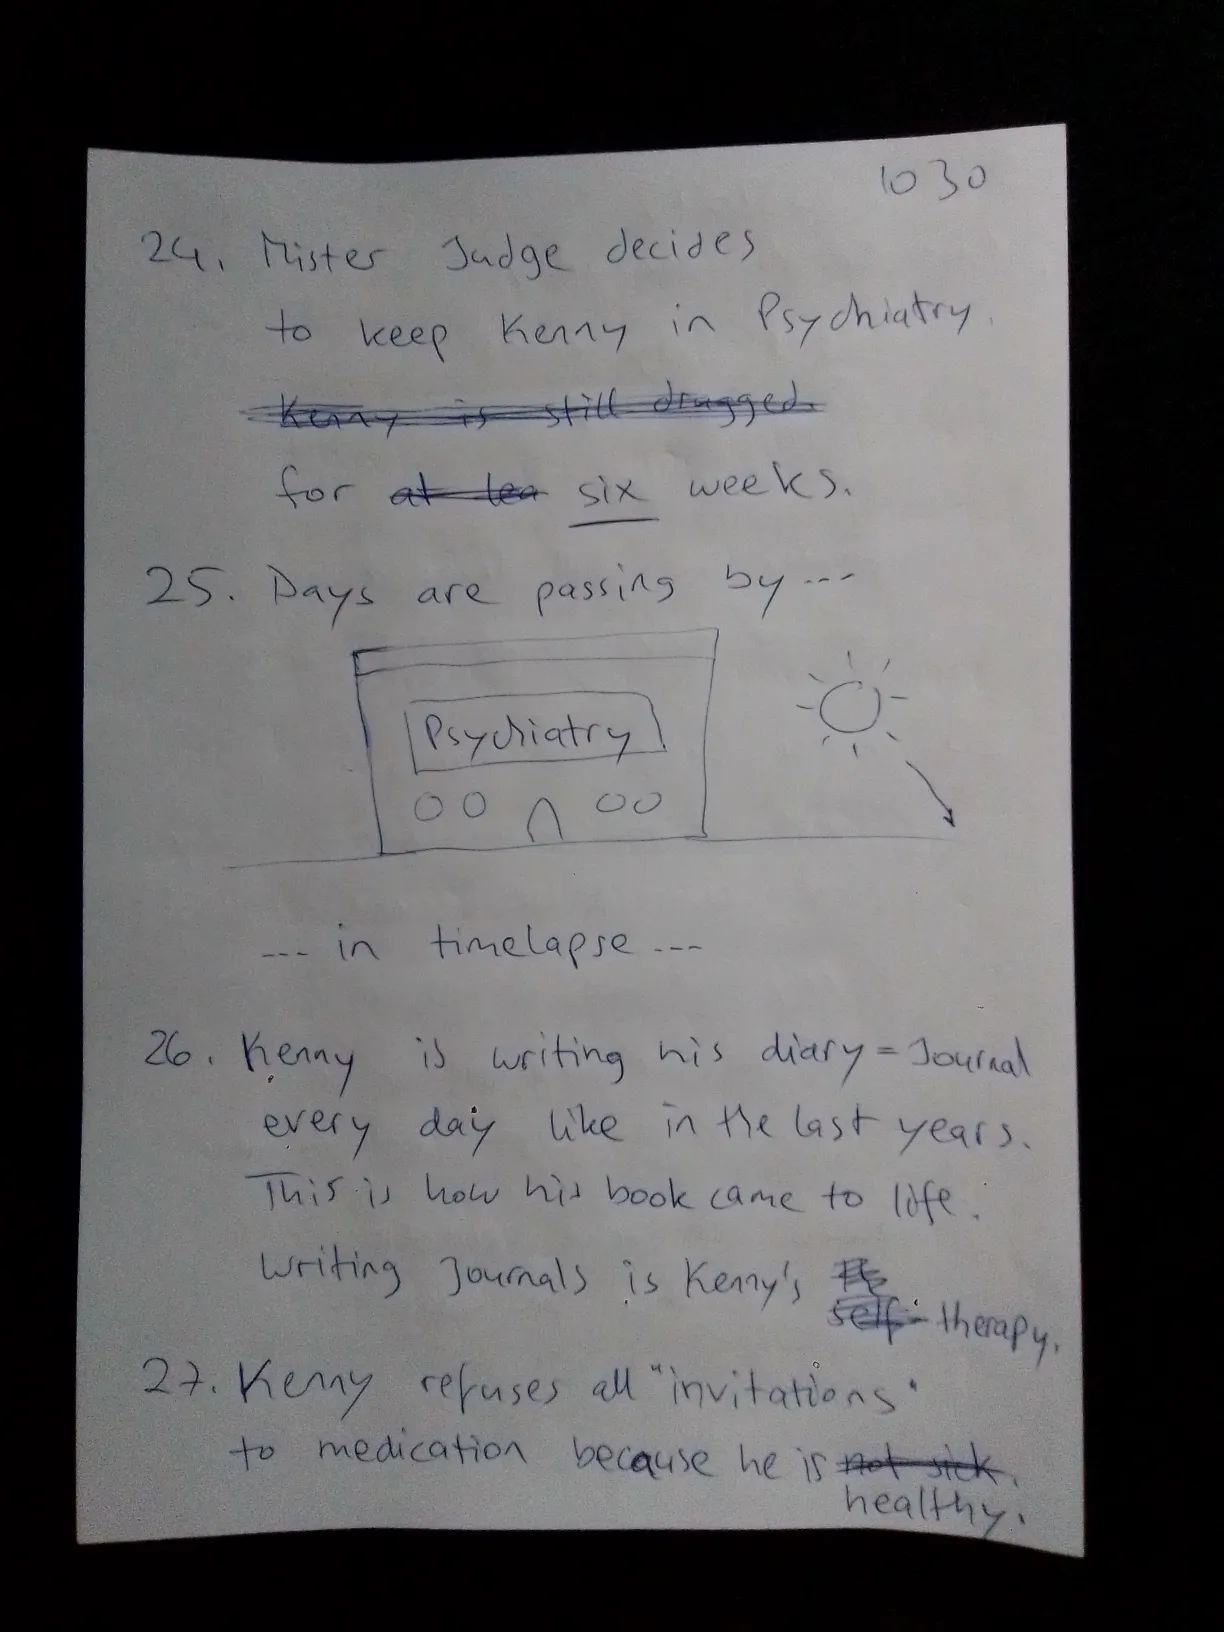 1030
24. Mister Judge decides
to keep Kenny in Psychiatry.
Kenny is still drugged.
for at lea six weeks.
25. Days are passing by ---
Psychiatry
--- in timelapse ---
26. Kenny is writing his diary = Journal
every day like in the last years.
This is how his book came to life.
Writing Journals is Kenny's
self- therapy.
27. Kenny refuses all "invitations"
to medication because he is not sick.
healthy.